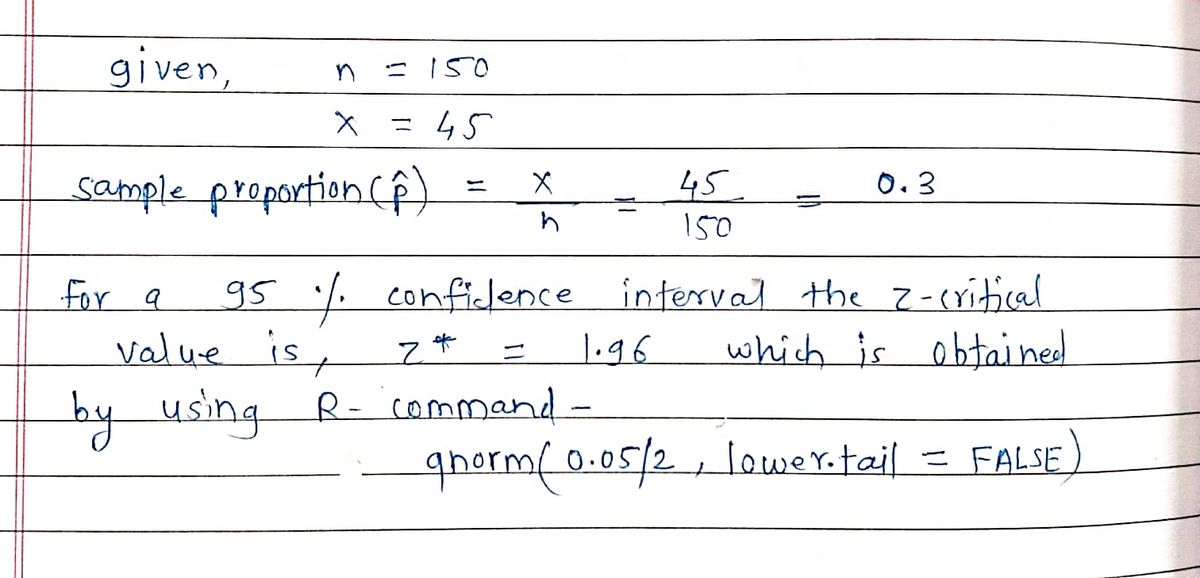 given, n = 150
x = 45
sample proportion (p̂) = x/n = 45/150 = 0.3
for a 95 % confidence interval the z-critical
value is, z* = 1.96 which is obtained
by using R- command -
qnorm( 0.05/2 , lower.tail = FALSE)